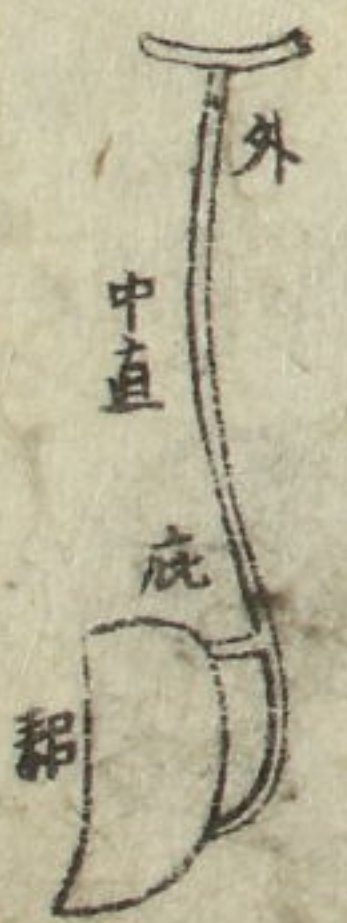 外
中直
庛
耜